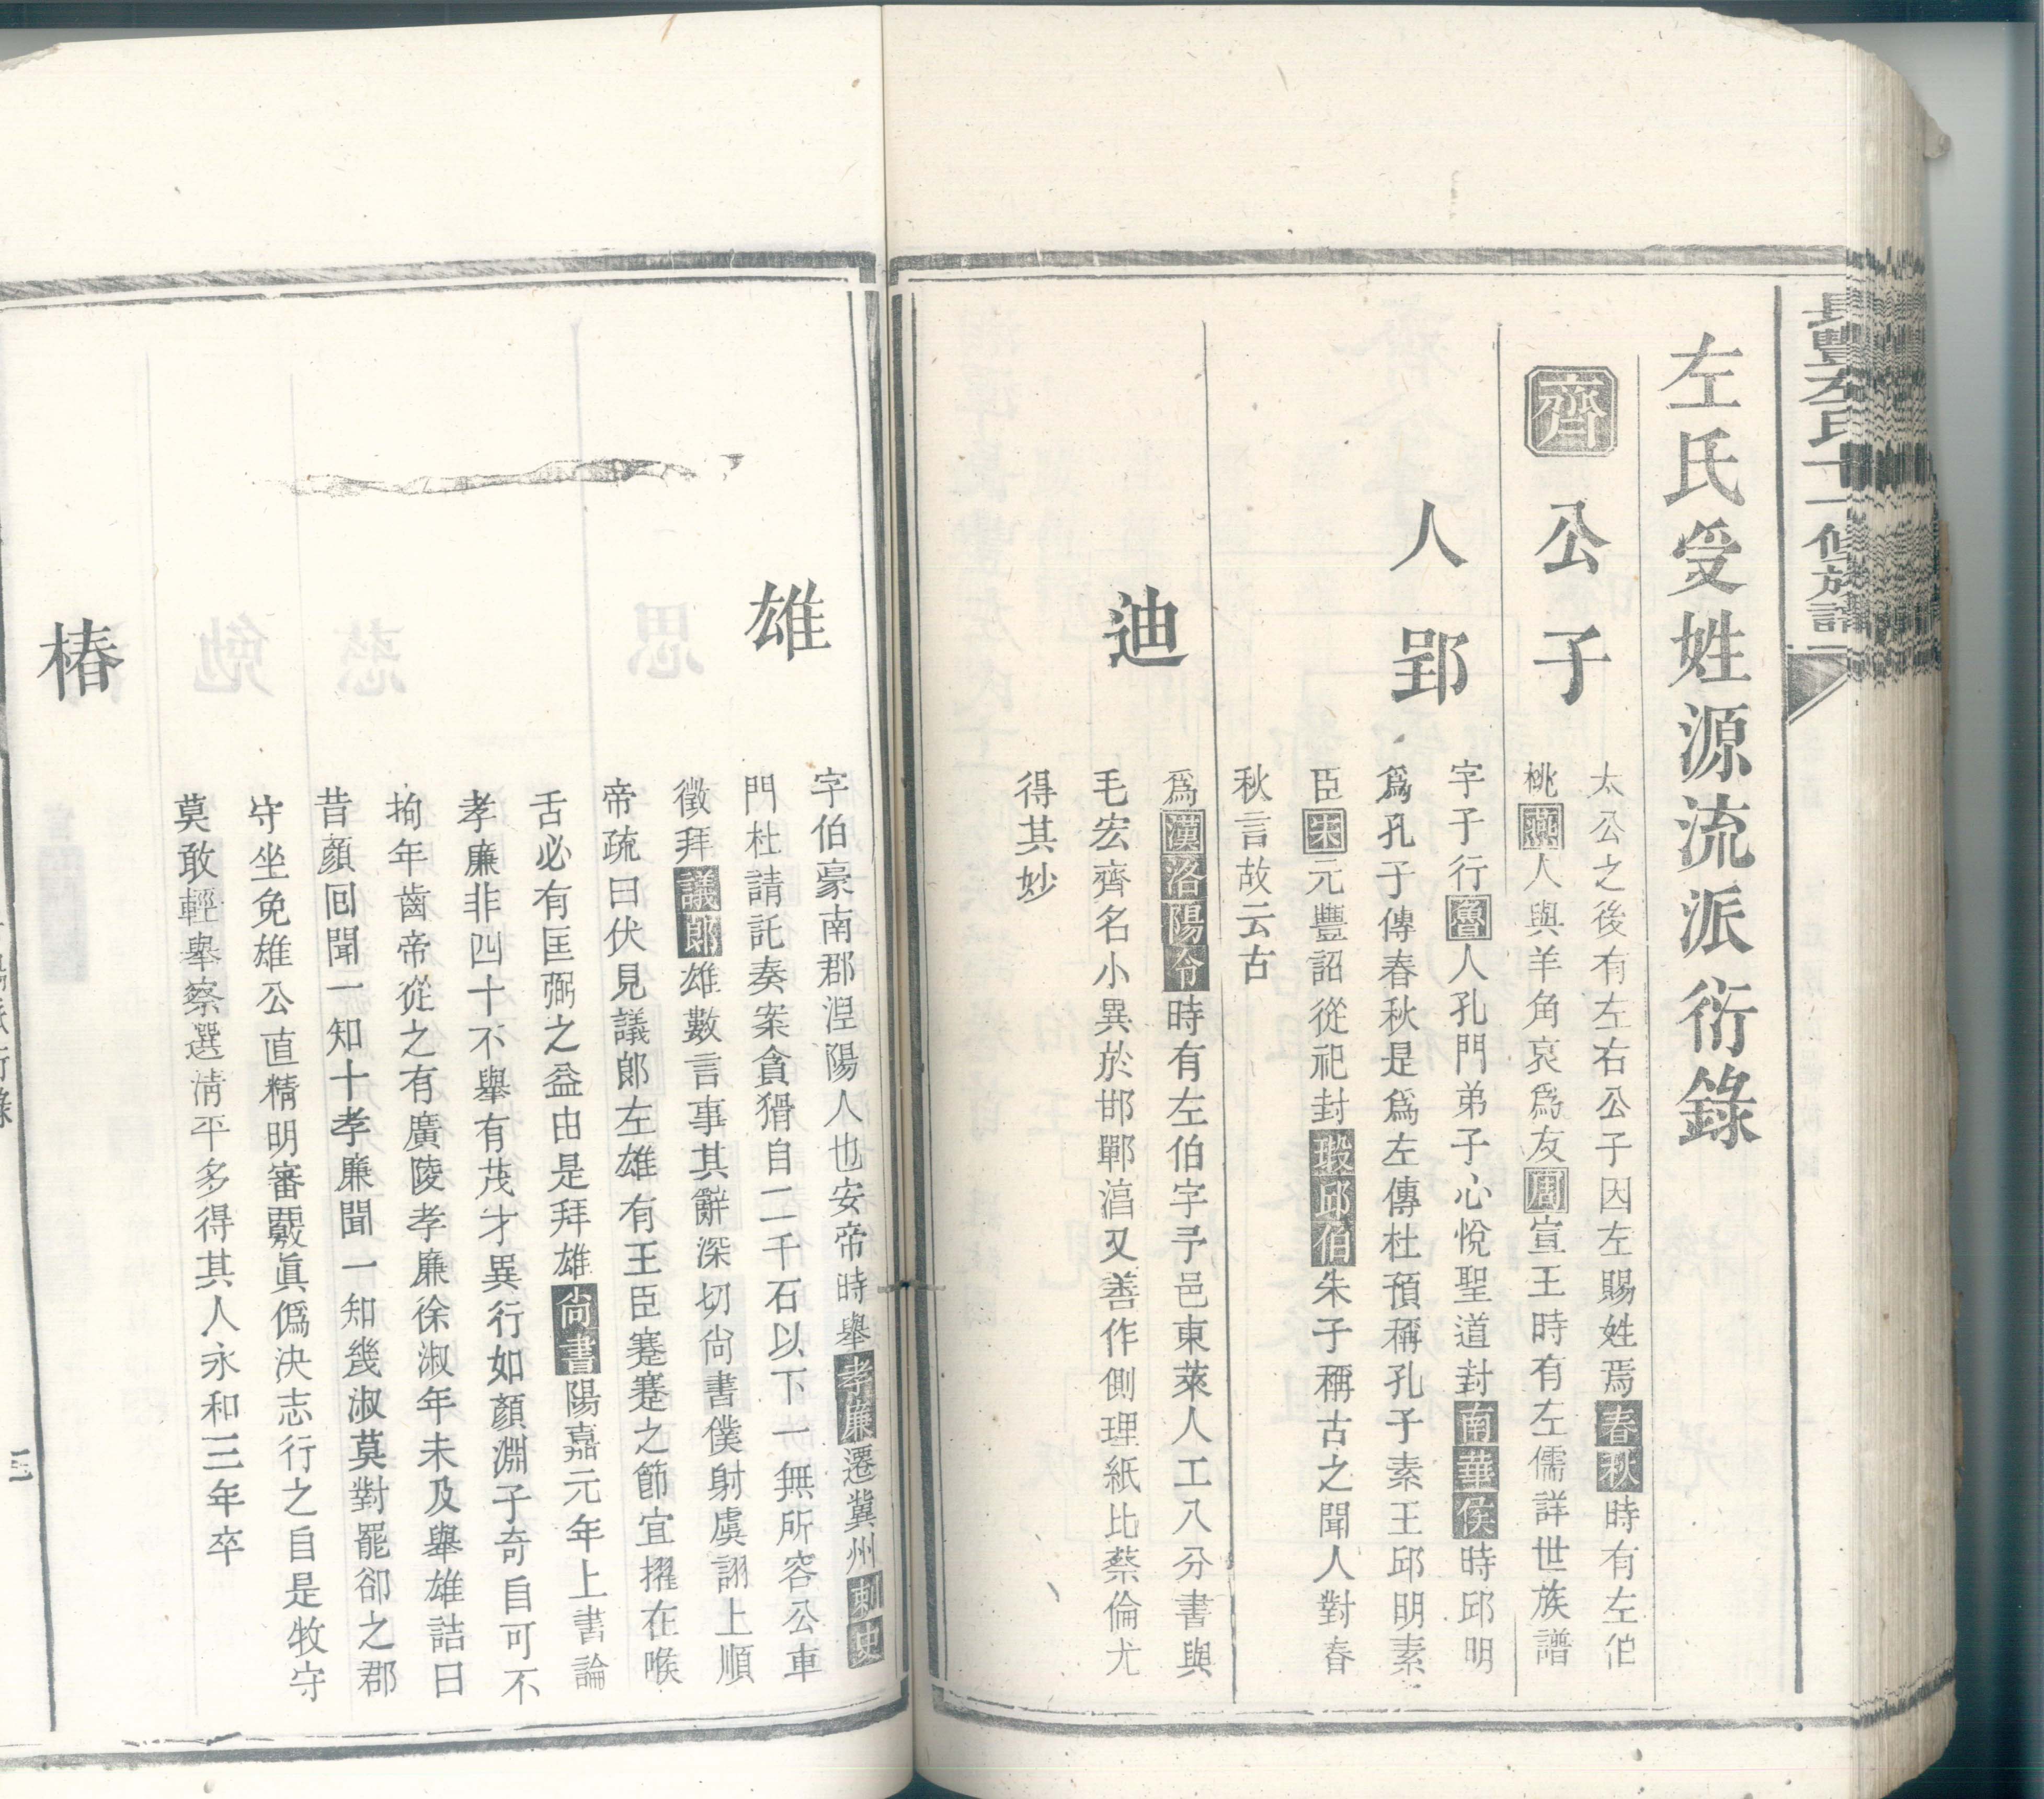 左氏受姓源流派衍錄
齊
公子
太公之後有左右公子因左賜姓焉春秋時有左伯
桃燕人與羊角哀爲友周宣王時有左儒詳世族譜
人郢
字子行魯人孔門弟子心悅聖道封南華侯時邱明
爲孔子傳春秋是爲左傳杜預稱孔子素王邱明素
臣宋元豐詔從祀封瑕邱伯朱子稱古之聞人對春
秋言故云古
迪
爲漢洛陽令時有左伯字予邑東萊人工八分書與
毛宏齊名小異於邯鄲淳又善作側理紙比蔡倫尤
得其妙
雄
字伯豪南郡涅陽人也安帝時舉孝廉遷冀州刺史
門杜請託奏案貪猾自二千石以下一無所容公車
徵拜議郎雄數言事其辭深切尚書僕射虞詡上順
帝疏曰伏見議郎左雄有王臣蹇蹇之節宜擢在喉
舌必有匡弼之益由是拜雄尚書陽嘉元年上書論
孝廉非四十不舉有茂才異行如顏淵子奇自可不
拘年齒帝從之有廣陵孝廉徐淑年未及舉雄詰曰
昔顏回聞一知十孝廉聞一知幾淑莫對罷卻之郡
守坐免雄公直精明審覈眞僞決志行之自是牧守
莫敢輕舉察選清平多得其人永和三年卒
椿